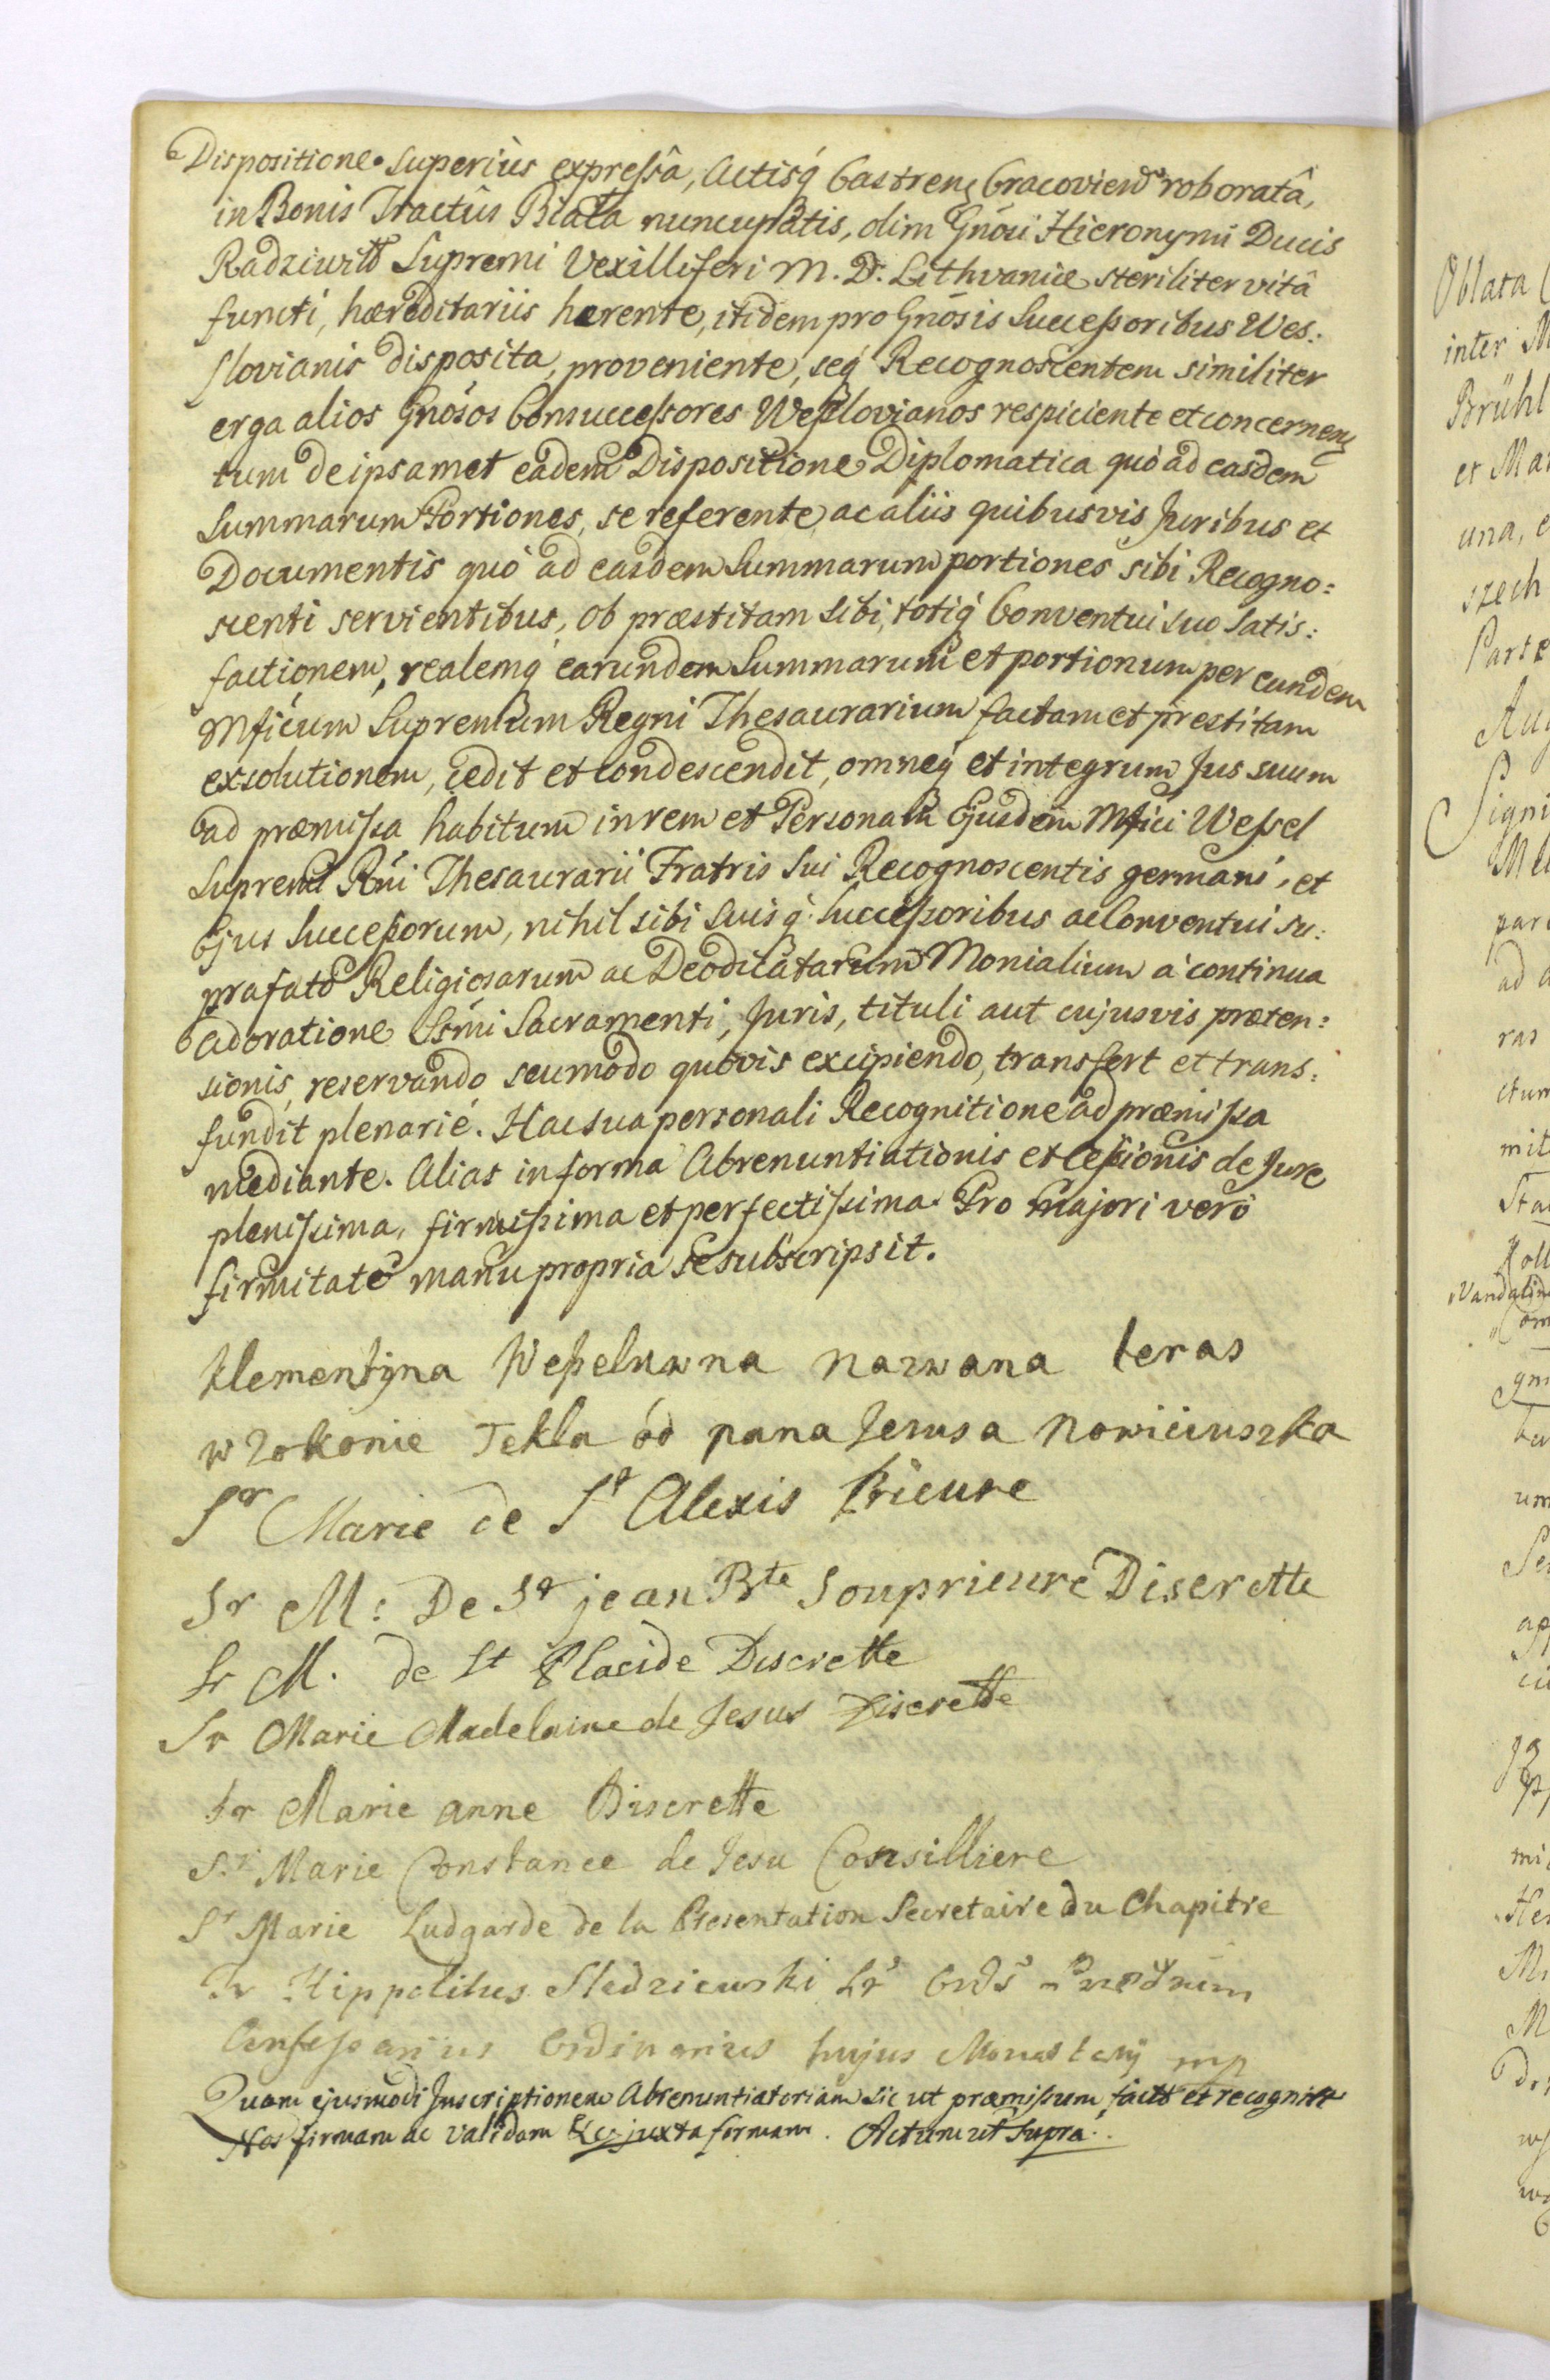 Dispositione superiùs expreßâ, Actisq́ Castren Cracovien roboratâ,
in Bonis Tractûs Biała nuncupatis, olim Gnōsi Hieronymi Ducis
Radziwiłł Supremi Vexilliferi M. D. Lithvaniæ steriliter vitâ
functi, hæreditariis hærente, itidem pro Gnōsis Succeßoribus Wes:
slovianis disposita, proveniente, seq́ Recognoscentem similiter
erga alios Gnōsos Consucceßores Weßlovianos respiciente et concernen
tum de ipsamet eadem Dispositione Diplomatica quò ad easdem
Summarum Portiones, se referente, ac aliis quibusvis Juribus et
Documentis quò ad easdem Summarum portiones sibi Recogno:
scenti servientibus, ob præstitam sibi, totiq́ Conventui suo Satis:
factionem, realemq́ earundem Summarum et portionum per eundem
Mficum Supremum Regni Thesaurarium factam et prestitam
exsolutionem, cedit et condescendit, omneq́ et integrum Jus suum
ad præmißa habitum in rem et Personam Ejusdem Mfici Weßel
Supremi Rńi Thesaurarii Fratris sui Recognoscentis germani, et
Ejus Succeßorum, nihil sibi Suisq́ Succeßoribus ac Conventui su:
prafato Religiosarum ac Deodicatarum Monialium à continua
Adoratione Ssḿi Sacramenti, Juris, tituli aut cujusvis præten:
sionis, reservando, seu modo quovis excipiendo, transfert et trans:
fundit plenarié. Hac sua personali Recognitione ad præmißa
mediante. Alias in forma Abrenuntiationis et Ceßionis de Jure
pleníßima, firmißima et perfectißima. Pro majori verò
firmitate manu propria se subscripsit.
Klementyna Weßeluwna nazwana teras
w Zokonie Tekla ód pana Jezusa Nowiciuszka
Sr Marie de St Alexis Prieure
Sr M: De St jean Bte Souprieure Discrette
Sr M. de St Placide Discrette
Sr Marie Madelaine de Jesus Discrette
Sr Marie anne Discrette
Sr Marie Constance de Jesu Consilliere
Sr Marie Ludgarde de la Presentation Secretaire du Chapitre
Fr Hippolitus Sledziewski Ordś
Confeßarius Ordinarius hujus Monasterij mp
Quam ejusmodi Inscriptionem Abrenuntiatoriam sic ut præmißum
Nos firmam ac validam &c juxta formam. Actum ut Supra.